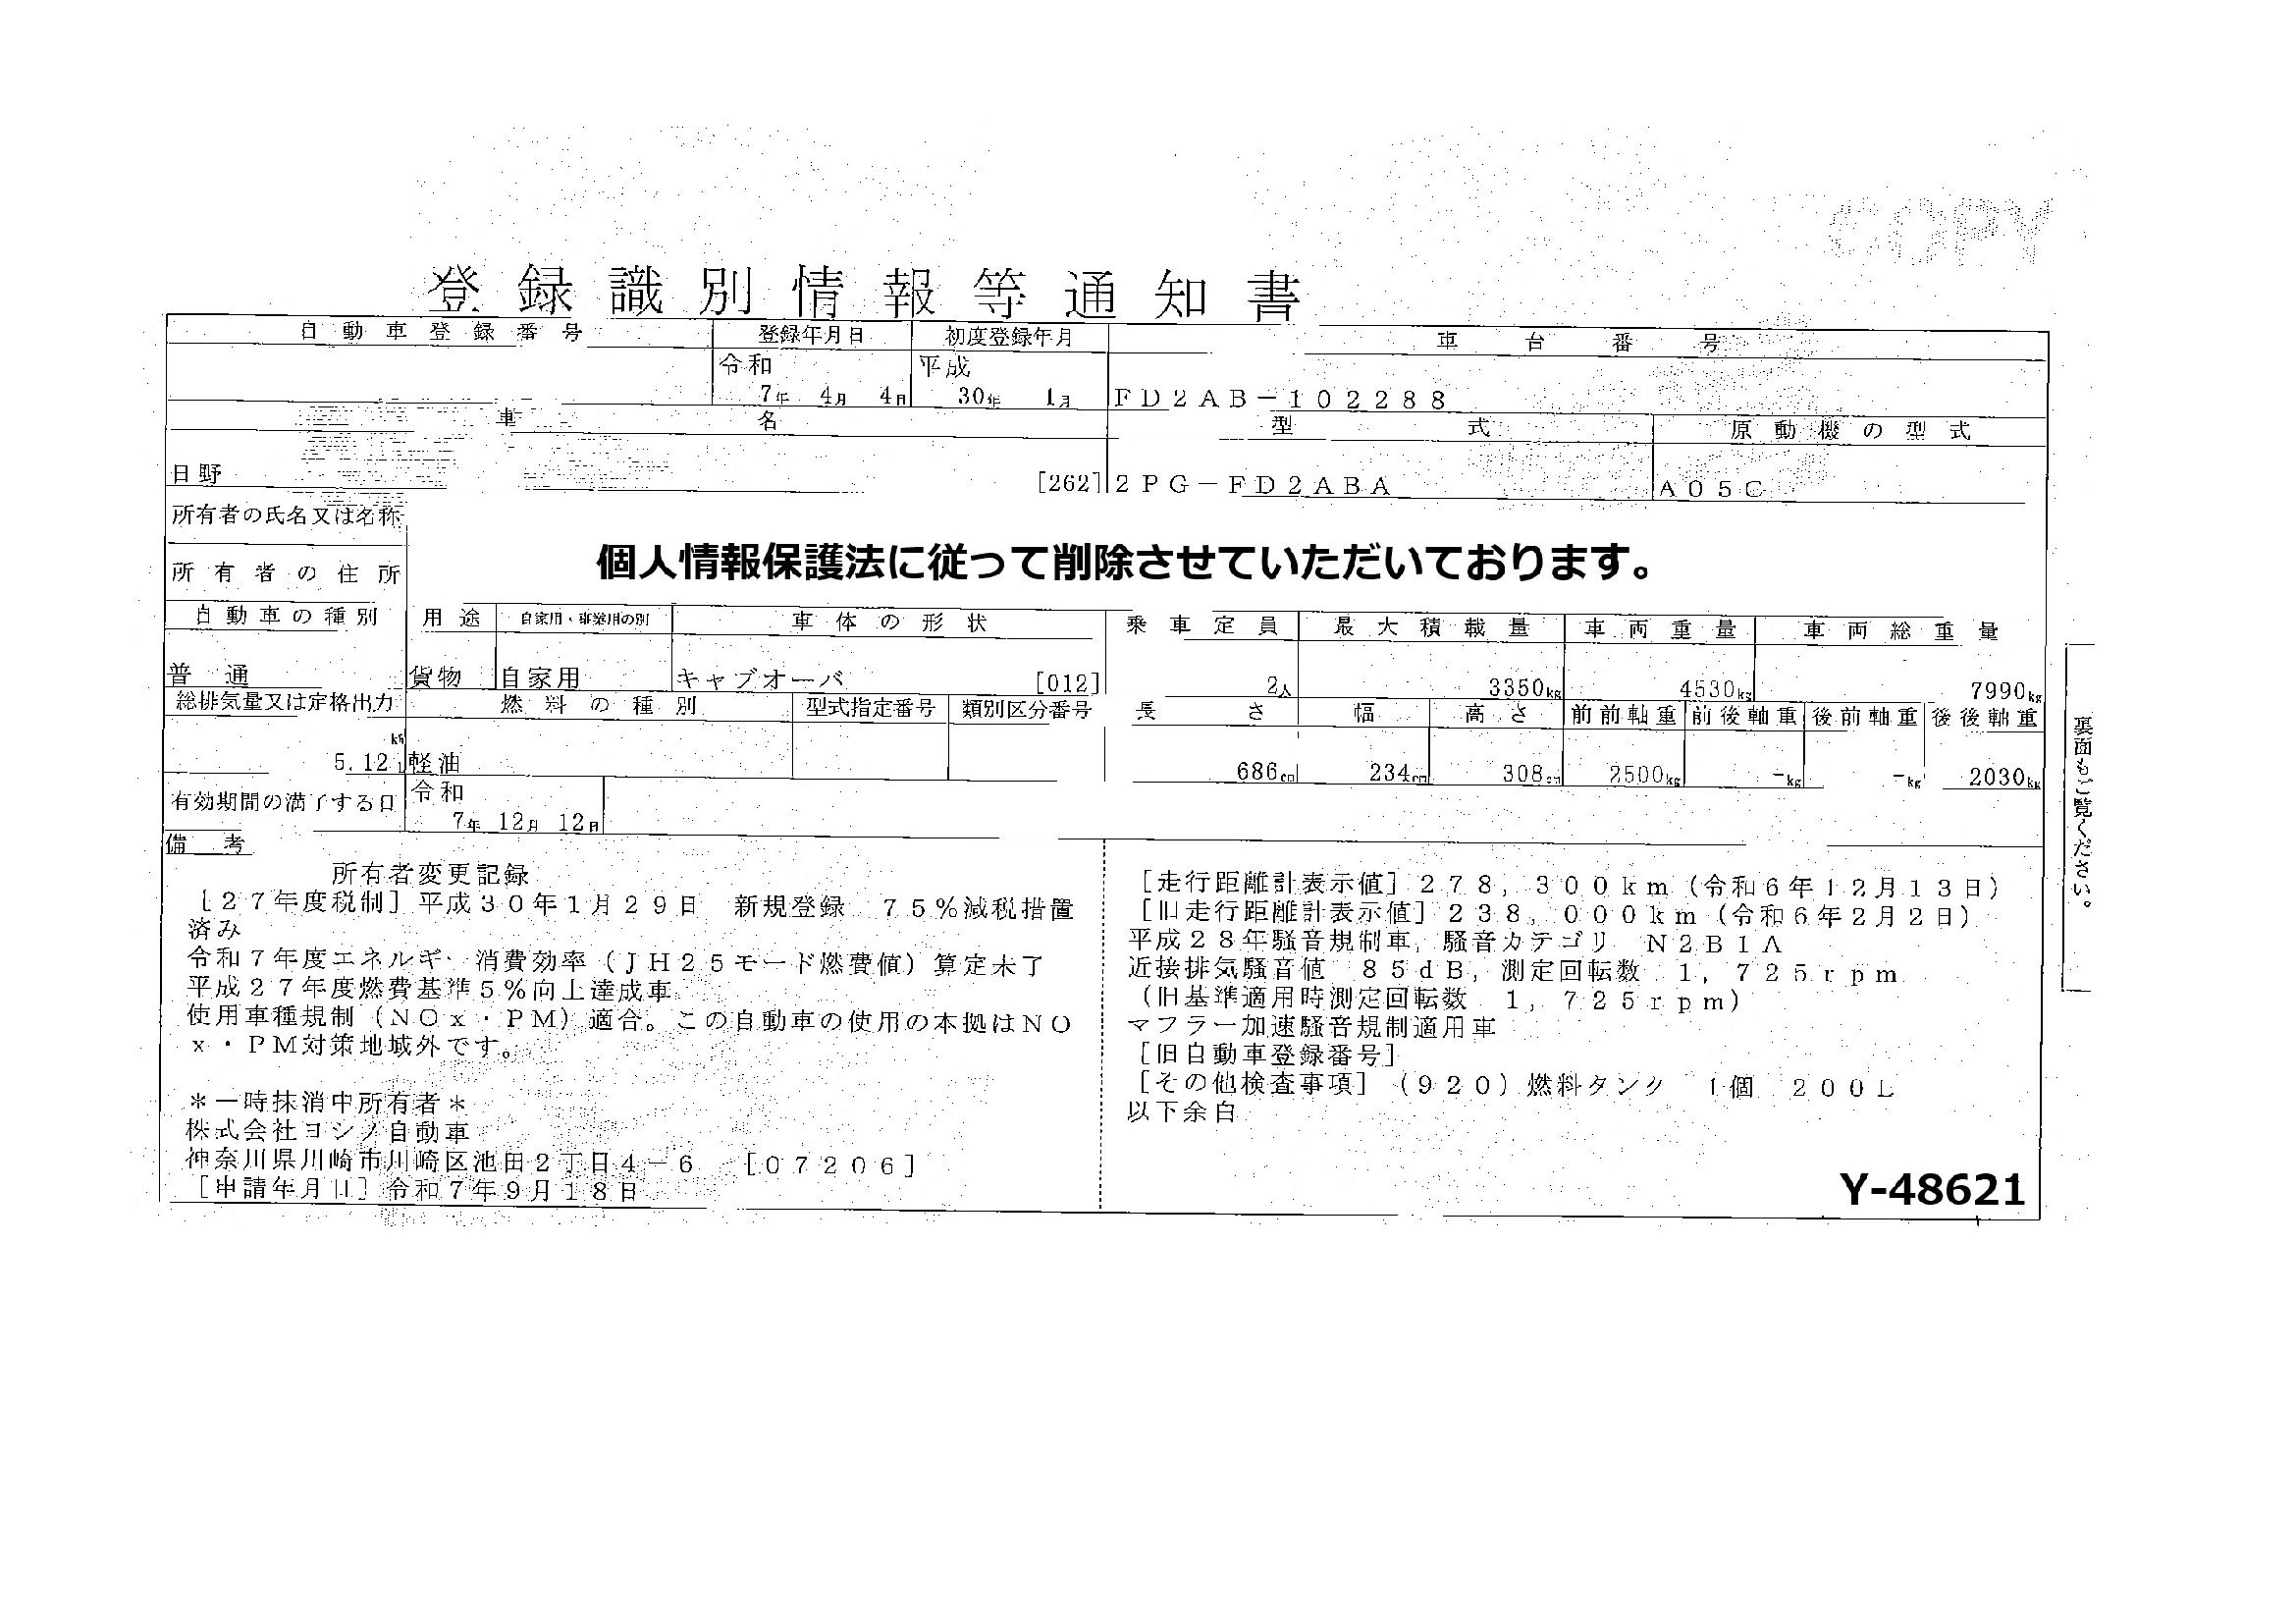 COPY
登録識別情報等通知書
自動車登録番号 登録年月日 初度登録年月 車台番号
令和 平成
7年 4月 4日 30年 1月 FD2AB-102288
車名 型式 原動機の型式
日野 [262] 2PG-FD2ABA A05C
所有者の氏名又は名称
個人情報保護法に従って削除させていただいております。
所有者の住所
自動車の種別 用途 自家用・事業用の別 車体の形状 乗車定員 最大積載量 車両重量 車両総重量
普通 貨物 自家用 キャブオーバ [012] 2人 3350kg 4530kg 7990kg
総排気量又は定格出力 燃料の種別 型式指定番号 類別区分番号 長さ 幅 高さ 前前軸重 前後軸重 後前軸重 後後軸重
kW
5.12 L 軽油 686cm 234cm 308cm 2500kg -kg -kg 2030kg
有効期間の満了する日 令和
7年 12月 12日
備考
所有者変更記録
[27年度税制]平成30年1月29日 新規登録 75%減税措置
済み
令和7年度エネルギー消費効率(JH25モード燃費値)算定未了
平成27年度燃費基準5%向上達成車
使用車種規制(NOx・PM)適合。この自動車の使用の本拠はNO
x・PM対策地域外です。
*一時抹消中所有者*
株式会社ヨシノ自動車
神奈川県川崎市川崎区池田2丁目4-6 [07206]
[申請年月日]令和7年9月18日
[走行距離計表示値]278,300km(令和6年12月13日)
[旧走行距離計表示値]238,000km(令和6年2月2日)
平成28年騒音規制車,騒音カテゴリ N2B1A
近接排気騒音値 85dB,測定回転数 1,725rpm
(旧基準適用時測定回転数 1,725rpm)
マフラー加速騒音規制適用車
[旧自動車登録番号]
[その他検査事項](920)燃料タンク 1個 200L
以下余白
Y-48621
裏面もご覧ください。